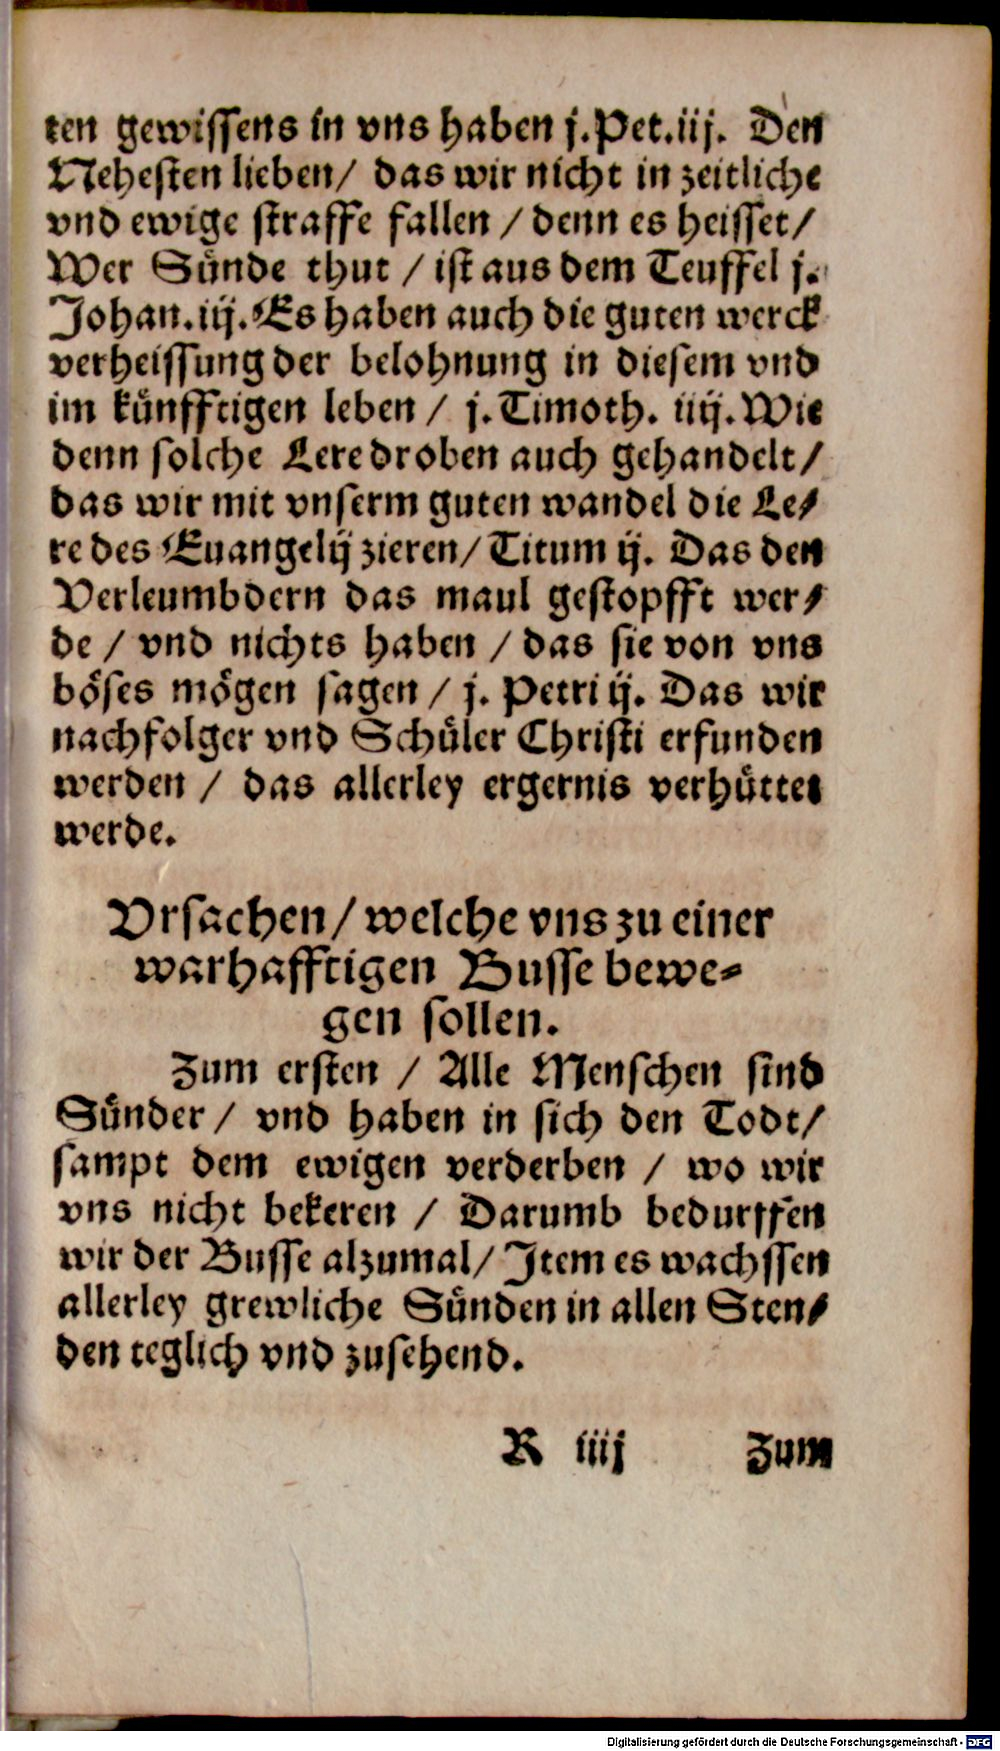 ten gewissens in vns haben j.Pet.iij. Den
Nehesten lieben/ das wir nicht in zeitliche
vnd ewige straffe fallen / denn es heisset/
Wer Sünde thut / ist aus dem Teuffel j.
Johan.iij. Es haben auch die guten werck
verheissung der belohnung in diesem vnd
im künfftigen leben / j. Timoth. iiij. Wie
denn solche Lere droben auch gehandelt/
das wir mit vnserm guten wandel die Le-
re des Euangelij zieren/ Titum ij. Das den
Verleumbdern das maul gestopfft wer-
de / vnd nichts haben / das sie von vns
böses mögen sagen / j. Petri ij. Das wir
nachfolger vnd Schüler Christi erfunden
werden / das allerley ergernis verhüttet
werde.
Vrsachen/ welche vns zu einer
warhafftigen Busse bewe-
gen sollen.
Zum ersten / Alle Menschen sind
Sünder / vnd haben in sich den Todt/
sampt dem ewigen verderben / wo wir
vns nicht bekeren / Darumb bedurffen
wir der Busse alzumal/ Item es wachssen
allerley grewliche Sünden in allen Sten-
den teglich vnd zusehend.
R iiij Zum
Digitalisierung gefördert durch die Deutsche Forschungsgemeinschaft - DFG